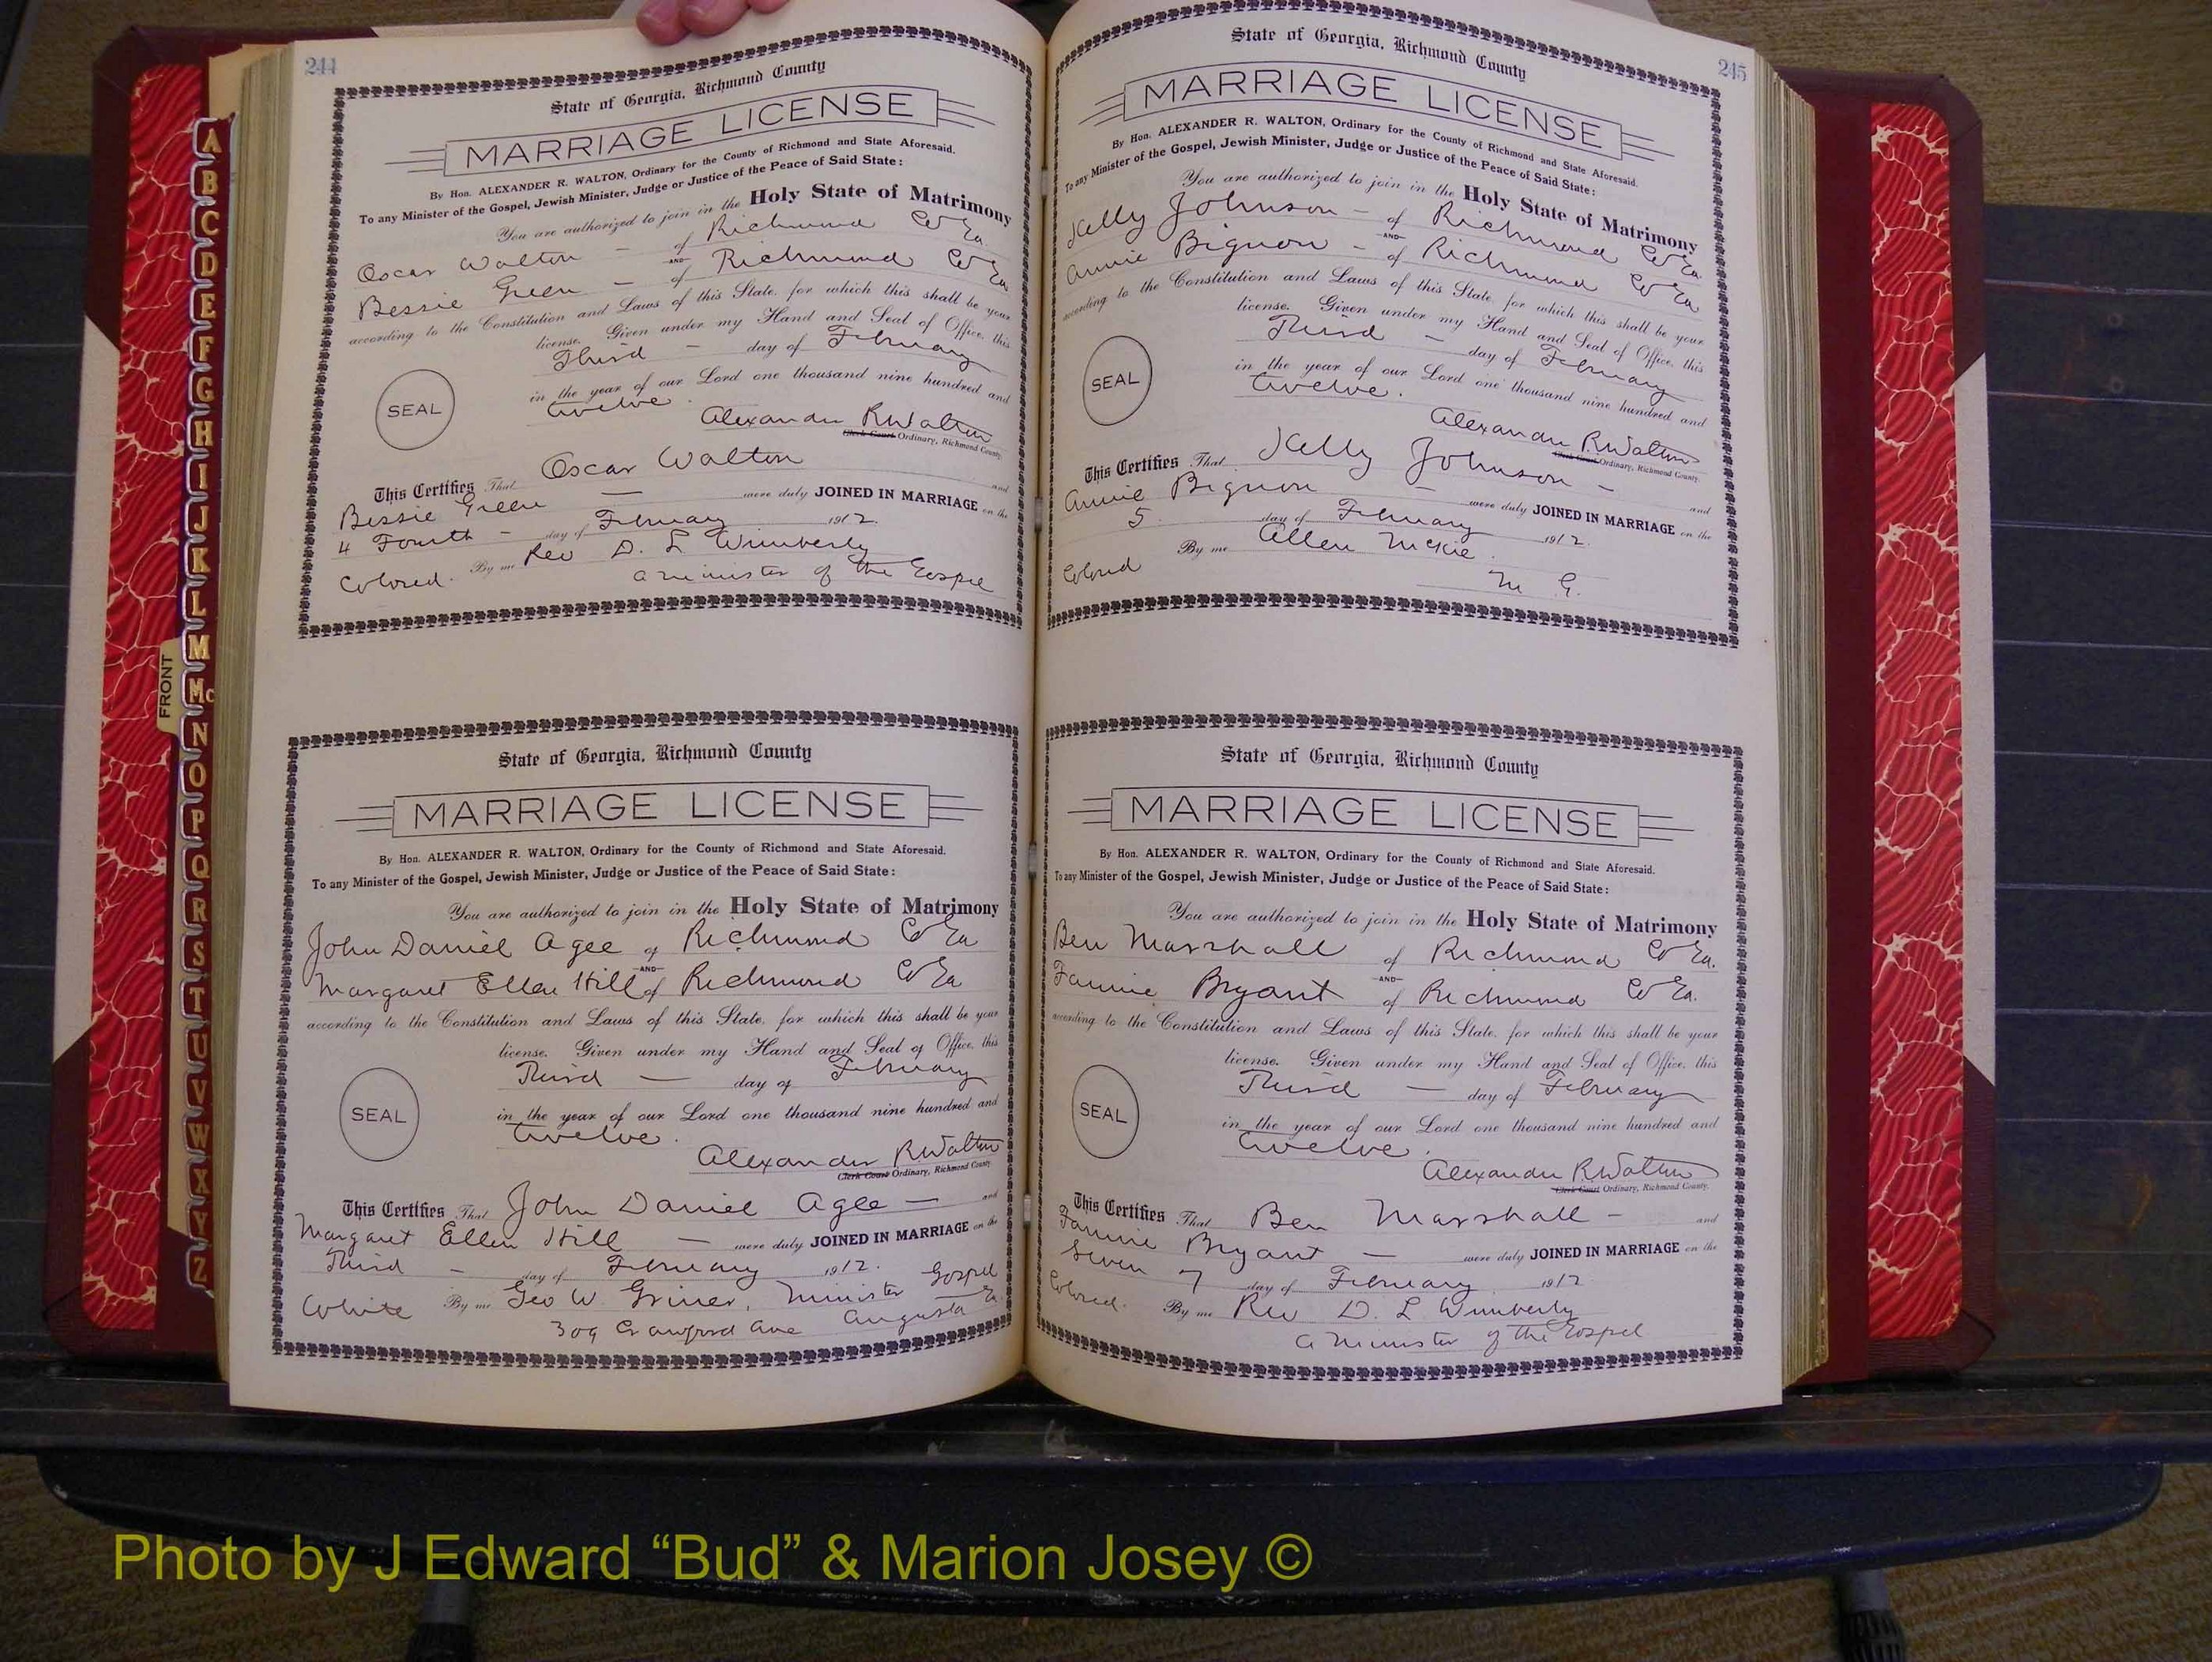 244
State of Georgia, Richmond County
MARRIAGE LICENSE
By Hon. ALEXANDER R. WALTON, Ordinary for the County of Richmond and State Aforesaid.
To any Minister of the Gospel, Jewish Minister, Judge or Justice of the Peace of Said State:
You are authorized to join in the Holy State of Matrimony
Oscar Walton — of Richmond Co Ga
AND
Bessie Green — of Richmond Co Ga
according to the Constitution and Laws of this State, for which this shall be your
license. Given under my Hand and Seal of Office, this
Third — day of February
in the year of our Lord one thousand nine hundred and
SEAL
twelve.
Alexander R Walton
Clerk Court Ordinary, Richmond County
This Certifies That Oscar Walton and
Bessie Green — were duly JOINED IN MARRIAGE on the
4 Fourth — day of February 1912.
Colored. By me Rev D. L Wimberly
a minister of the Gospel
State of Georgia, Richmond County
MARRIAGE LICENSE
By Hon. ALEXANDER R. WALTON, Ordinary for the County of Richmond and State Aforesaid.
To any Minister of the Gospel, Jewish Minister, Judge or Justice of the Peace of Said State:
You are authorized to join in the Holy State of Matrimony
John Daniel Agee of Richmond Co Ga
AND
Margaret Ellen Hill of Richmond Co Ga
according to the Constitution and Laws of this State, for which this shall be your
license. Given under my Hand and Seal of Office, this
Third — day of February
SEAL
in the year of our Lord one thousand nine hundred and
twelve.
Alexander R Walton
Clerk Court Ordinary, Richmond County
This Certifies That John Daniel Agee — and
Margaret Ellen Hill — were duly JOINED IN MARRIAGE on the
Third — day of February 1912.
White By me Geo W. Griner, Minister Gospel
309 Crawford Ave Augusta Ga.
245
State of Georgia, Richmond County
MARRIAGE LICENSE
By Hon. ALEXANDER R. WALTON, Ordinary for the County of Richmond and State Aforesaid.
To any Minister of the Gospel, Jewish Minister, Judge or Justice of the Peace of Said State:
You are authorized to join in the Holy State of Matrimony
Kelly Johnson — of Richmond Co Ga
AND
Annie Bignon — of Richmond Co Ga
according to the Constitution and Laws of this State, for which this shall be your
license. Given under my Hand and Seal of Office, this
Third — day of February
SEAL
in the year of our Lord one thousand nine hundred and
twelve.
Alexander R Walton
Clerk Court Ordinary, Richmond County
This Certifies That Kelly Johnson — and
Annie Bignon — were duly JOINED IN MARRIAGE on the
5 day of February 1912.
Colored By me Allen McKie.
M G.
State of Georgia, Richmond County
MARRIAGE LICENSE
By Hon. ALEXANDER R. WALTON, Ordinary for the County of Richmond and State Aforesaid.
To any Minister of the Gospel, Jewish Minister, Judge or Justice of the Peace of Said State:
You are authorized to join in the Holy State of Matrimony
Ben Marshall of Richmond Co Ga.
AND
Fannie Bryant of Richmond Co Ga.
according to the Constitution and Laws of this State, for which this shall be your
license. Given under my Hand and Seal of Office, this
Third — day of February
SEAL
in the year of our Lord one thousand nine hundred and
twelve.
Alexander R Walton
Clerk Court Ordinary, Richmond County
This Certifies That Ben Marshall — and
Fannie Bryant — were duly JOINED IN MARRIAGE on the
Seven 7 day of February 1912
Colored. By me Rev D. L Wimberly
a Minister of the Gospel
A
B
C
D
E
F
G
H
I
J
K
L
M
Mc
N
O
P
Q
R
S
T
U
V
W
X
Y
Z
FRONT
Photo by J Edward “Bud” & Marion Josey ©